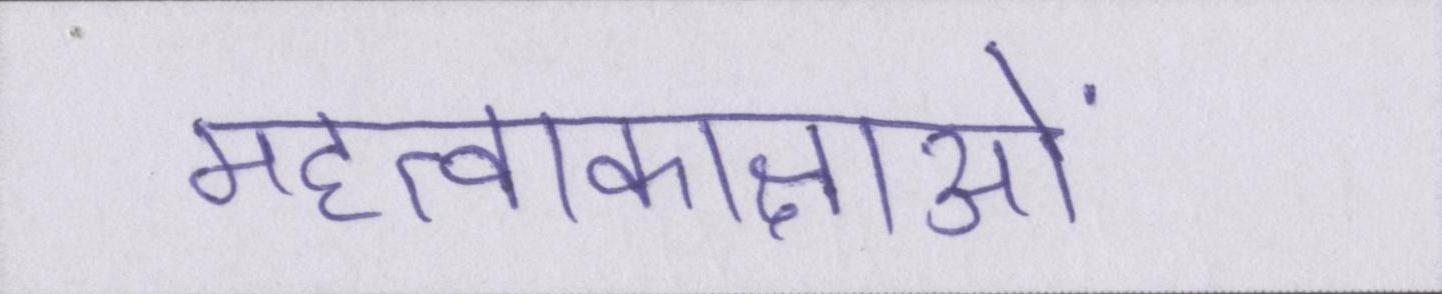 महत्वाकाक्षाओं